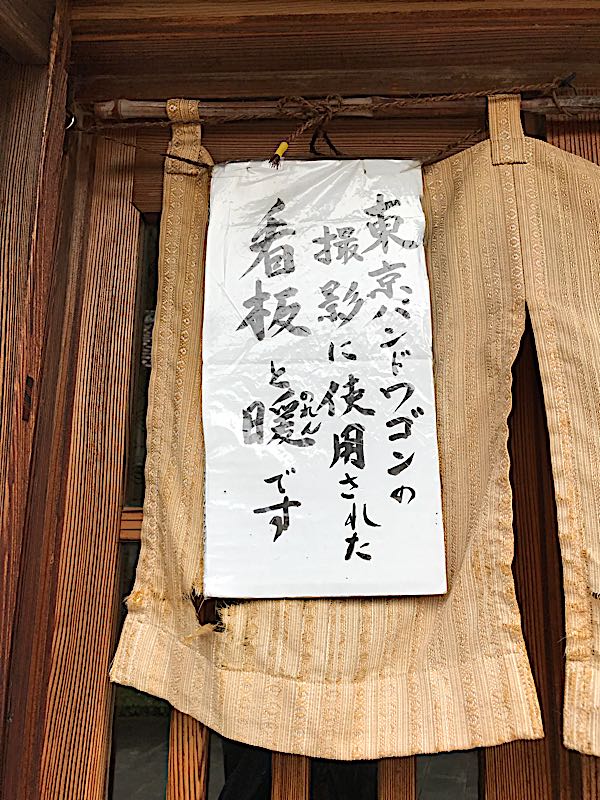 東京バンドワゴンの
撮影に使用された
看板と暖です
のれん